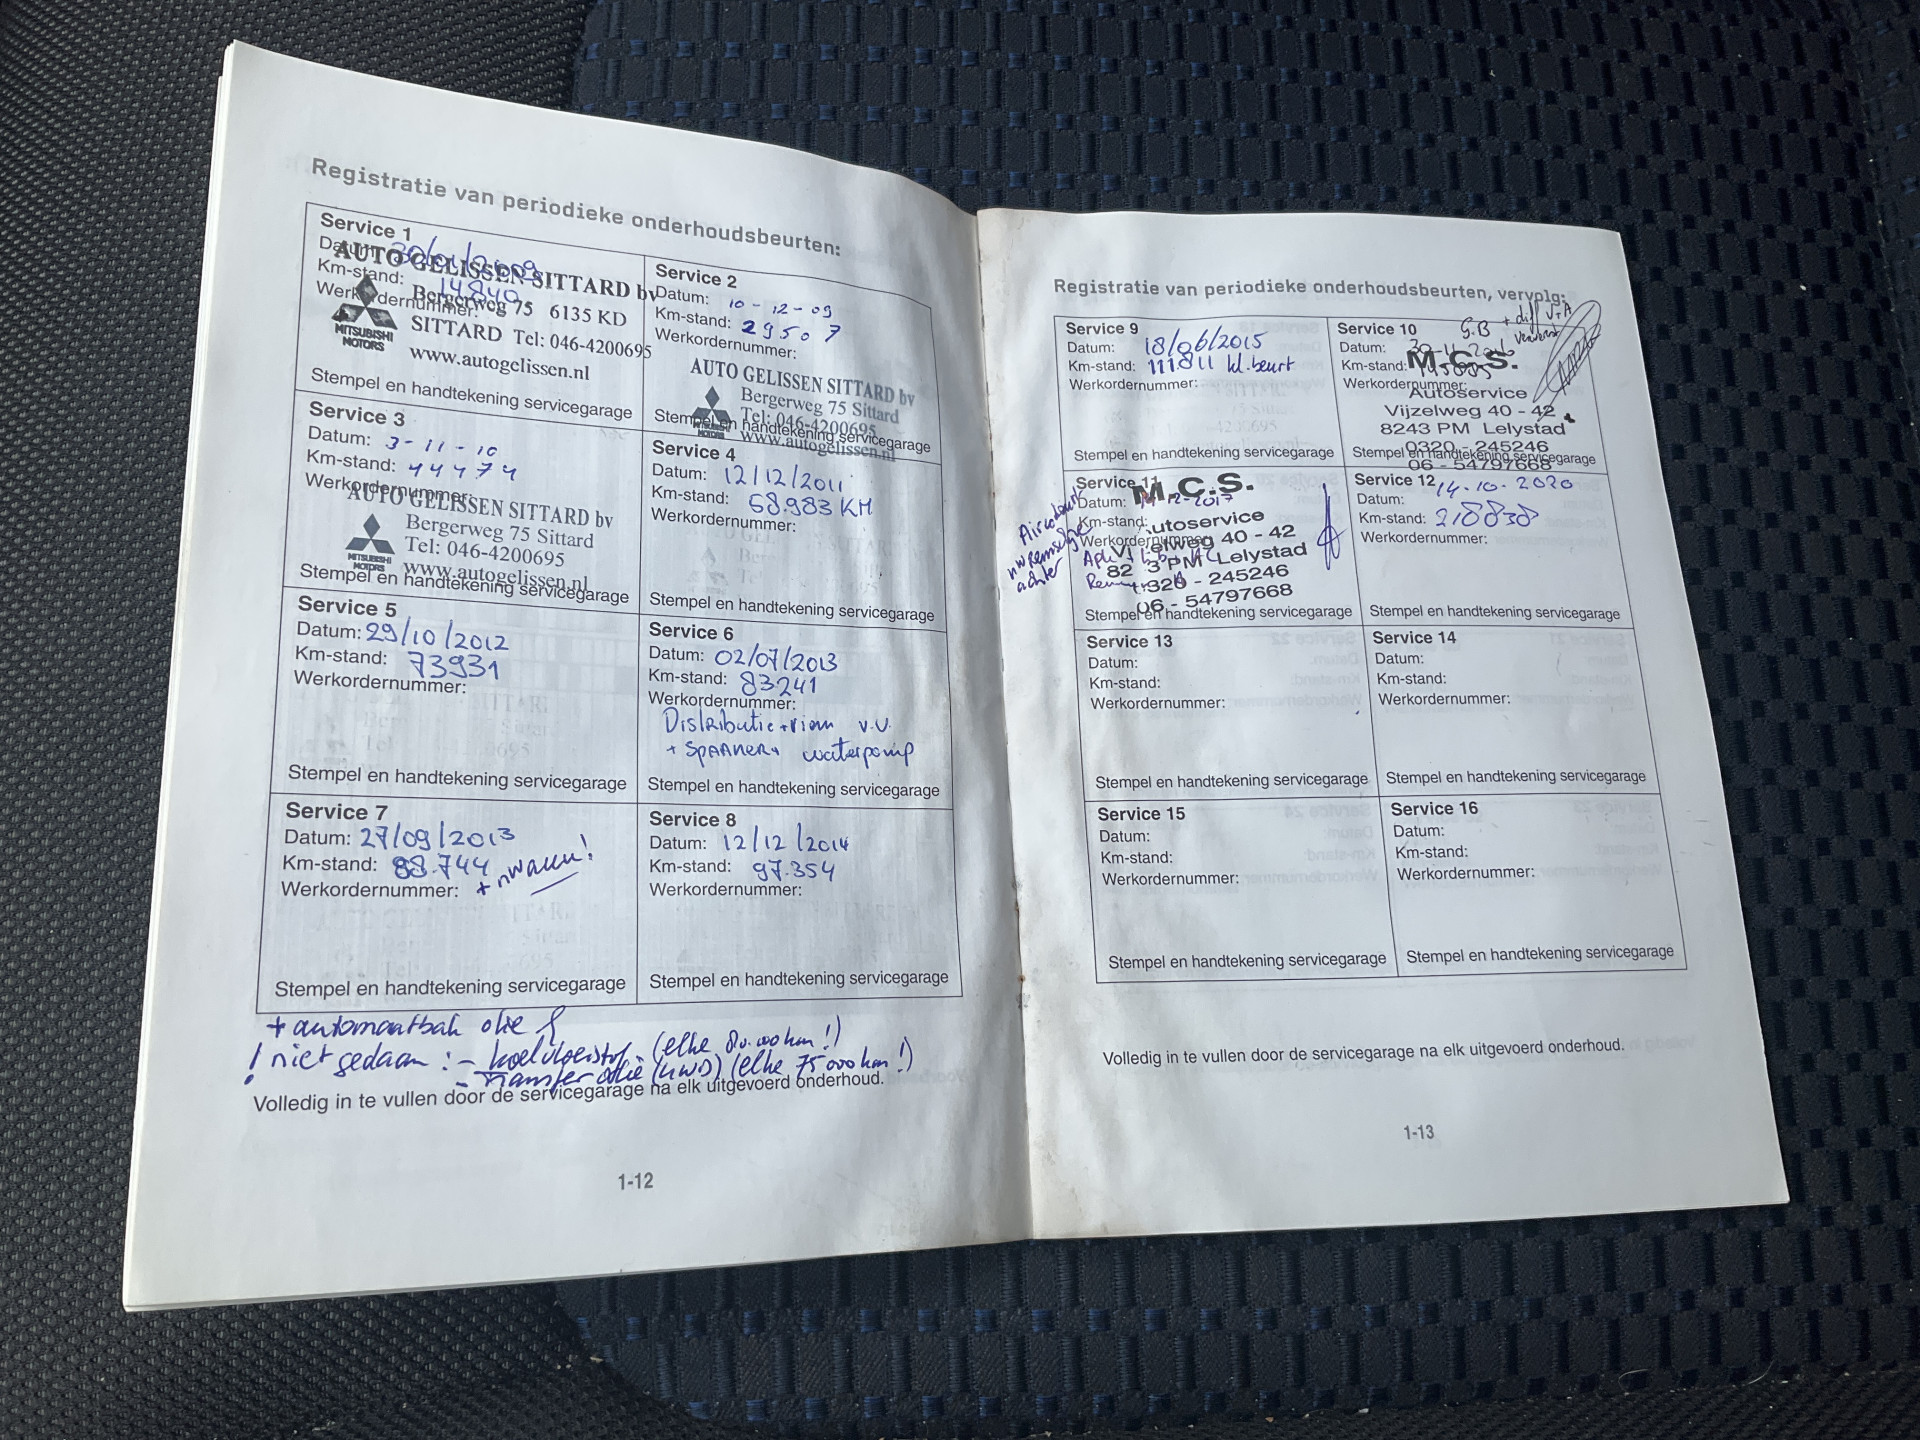 Registratie van periodieke onderhoudsbeurten:
Service 1
Datum: 30/01/2009
Km-stand: 14840
Werkordernummer:
AUTO GELISSEN SITTARD bv
Bergerweg 75 6135 KD
SITTARD Tel: 046-4200695
www.autogelissen.nl
MITSUBISHI
MOTORS
Stempel en handtekening servicegarage
Service 2
Datum: 10-12-09
Km-stand: 29507
Werkordernummer:
AUTO GELISSEN SITTARD bv
Bergerweg 75 Sittard
Tel: 046-4200695
www.autogelissen.nl
Stempel en handtekening servicegarage
Service 3
Datum: 3-11-10
Km-stand: 44474
Werkordernummer:
AUTO GELISSEN SITTARD bv
Bergerweg 75 Sittard
Tel: 046-4200695
www.autogelissen.nl
MITSUBISHI
MOTORS
Stempel en handtekening servicegarage
Service 4
Datum: 12/12/2011
Km-stand: 68.983 KM
Werkordernummer:
Stempel en handtekening servicegarage
Service 5
Datum: 29/10/2012
Km-stand: 73931
Werkordernummer:
Stempel en handtekening servicegarage
Service 6
Datum: 02/07/2013
Km-stand: 83241
Werkordernummer:
Distributie+riem v.v.
+ SPANNER+ waterpomp
Stempel en handtekening servicegarage
Service 7
Datum: 27/09/2013
Km-stand: 88.744
Werkordernummer:
Stempel en handtekening servicegarage
Service 8
Datum: 12/12/2014
Km-stand: 97.354
Werkordernummer:
Stempel en handtekening servicegarage
+ automaatbak olie
! niet gedaan: - koelvloeistof - (elke 80.000 km!)
- Transfer olie (4WD) (elke 75000 km!)
Volledig in te vullen door de servicegarage na elk uitgevoerd onderhoud.
1-12
Registratie van periodieke onderhoudsbeurten, vervolg:
Service 9
Datum: 18/06/2015
Km-stand: 111811 kl.beurt
Werkordernummer:
Stempel en handtekening servicegarage
Service 10
G.B + diff V+A
Datum: 30-11-2016
Km-stand:
Werkordernummer:
M.C.S.
Autoservice
Vijzelweg 40 - 42
8243 PM Lelystad
0320 - 245246
06 - 54797668
Stempel en handtekening servicegarage
Service 11
Datum: 12-2017
Km-stand:
Werkordernummer:
M.C.S.
Autoservice
40 - 42
PM Lelystad
0320 - 245246
06 - 54797668
achter
Stempel en handtekening servicegarage
Service 12
Datum: 14.10.2020
Km-stand: 218838
Werkordernummer:
Stempel en handtekening servicegarage
Service 13
Datum:
Km-stand:
Werkordernummer:
Stempel en handtekening servicegarage
Service 14
Datum:
Km-stand:
Werkordernummer:
Stempel en handtekening servicegarage
Service 15
Datum:
Km-stand:
Werkordernummer:
Stempel en handtekening servicegarage
Service 16
Datum:
Km-stand:
Werkordernummer:
Stempel en handtekening servicegarage
Volledig in te vullen door de servicegarage na elk uitgevoerd onderhoud.
1-13